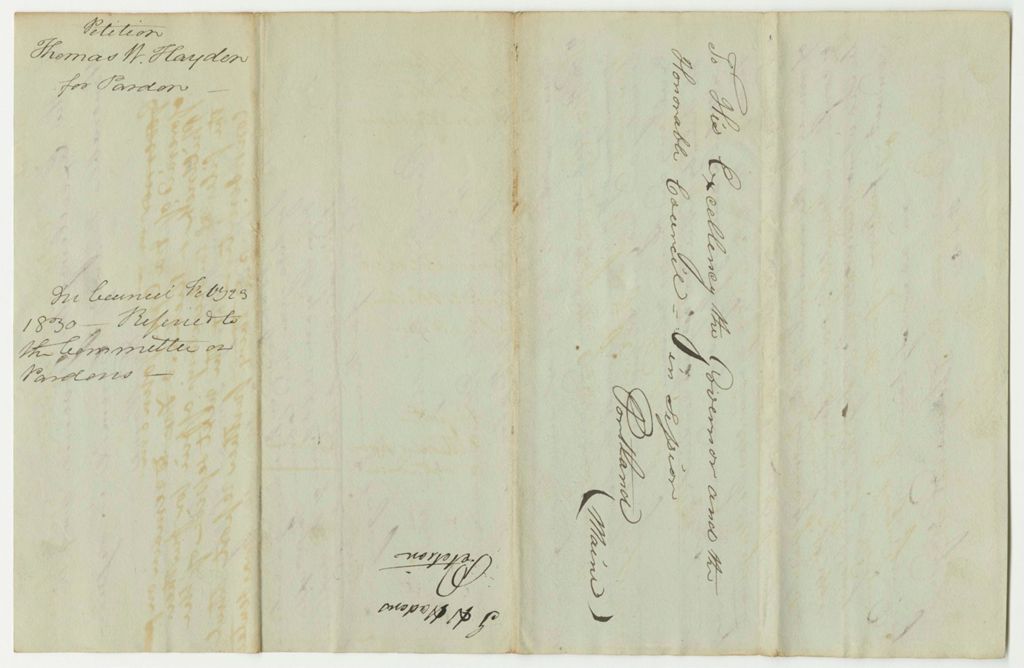 Petition
Thomas W. Hayden
for Pardon —
In Council Feby 23
1830 — Referred to
the Committee on
Pardons —
To His Excellency the Governor and the
Honorable Council = in Session
Portland
(Maine)
T W Hadens
Petetion